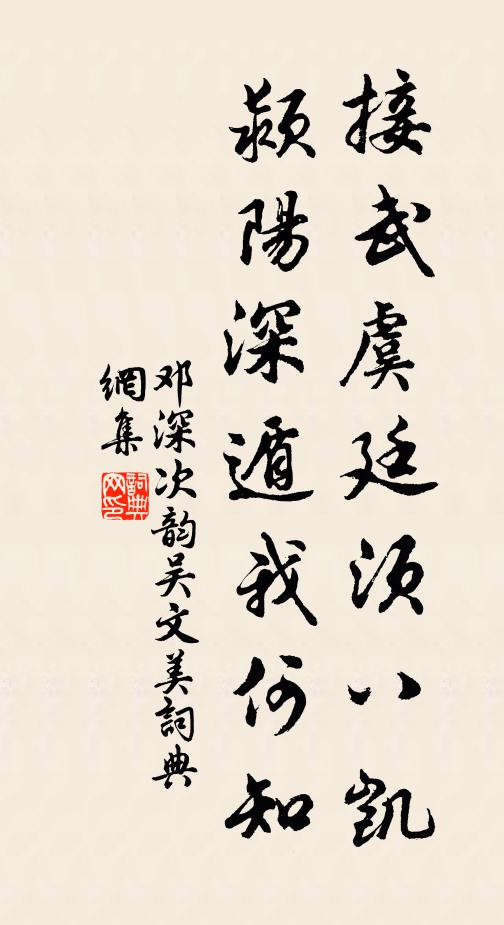 接武虞廷須八凱
潁陽深遁我何知
邓深次韵吴文美詞典
網集
詞典
网印